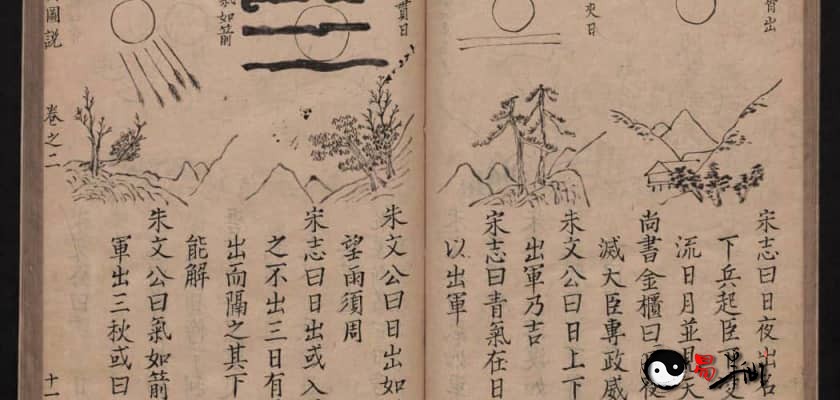 宵出
宋志曰日夜出名
下兵起臣
流日月並見天
尚書金櫃曰夜
滅大臣專政威
夾日
朱文公曰日上下
出軍乃吉
宋志曰青氣在日
以出軍
貫日
朱文公曰日出如
望雨須周
宋志曰日出或入
之不出三日有
出而隔之其下
能解
氣如箭
朱文公曰氣如箭
軍出三秋或曰
圖説
卷之二
十一
易